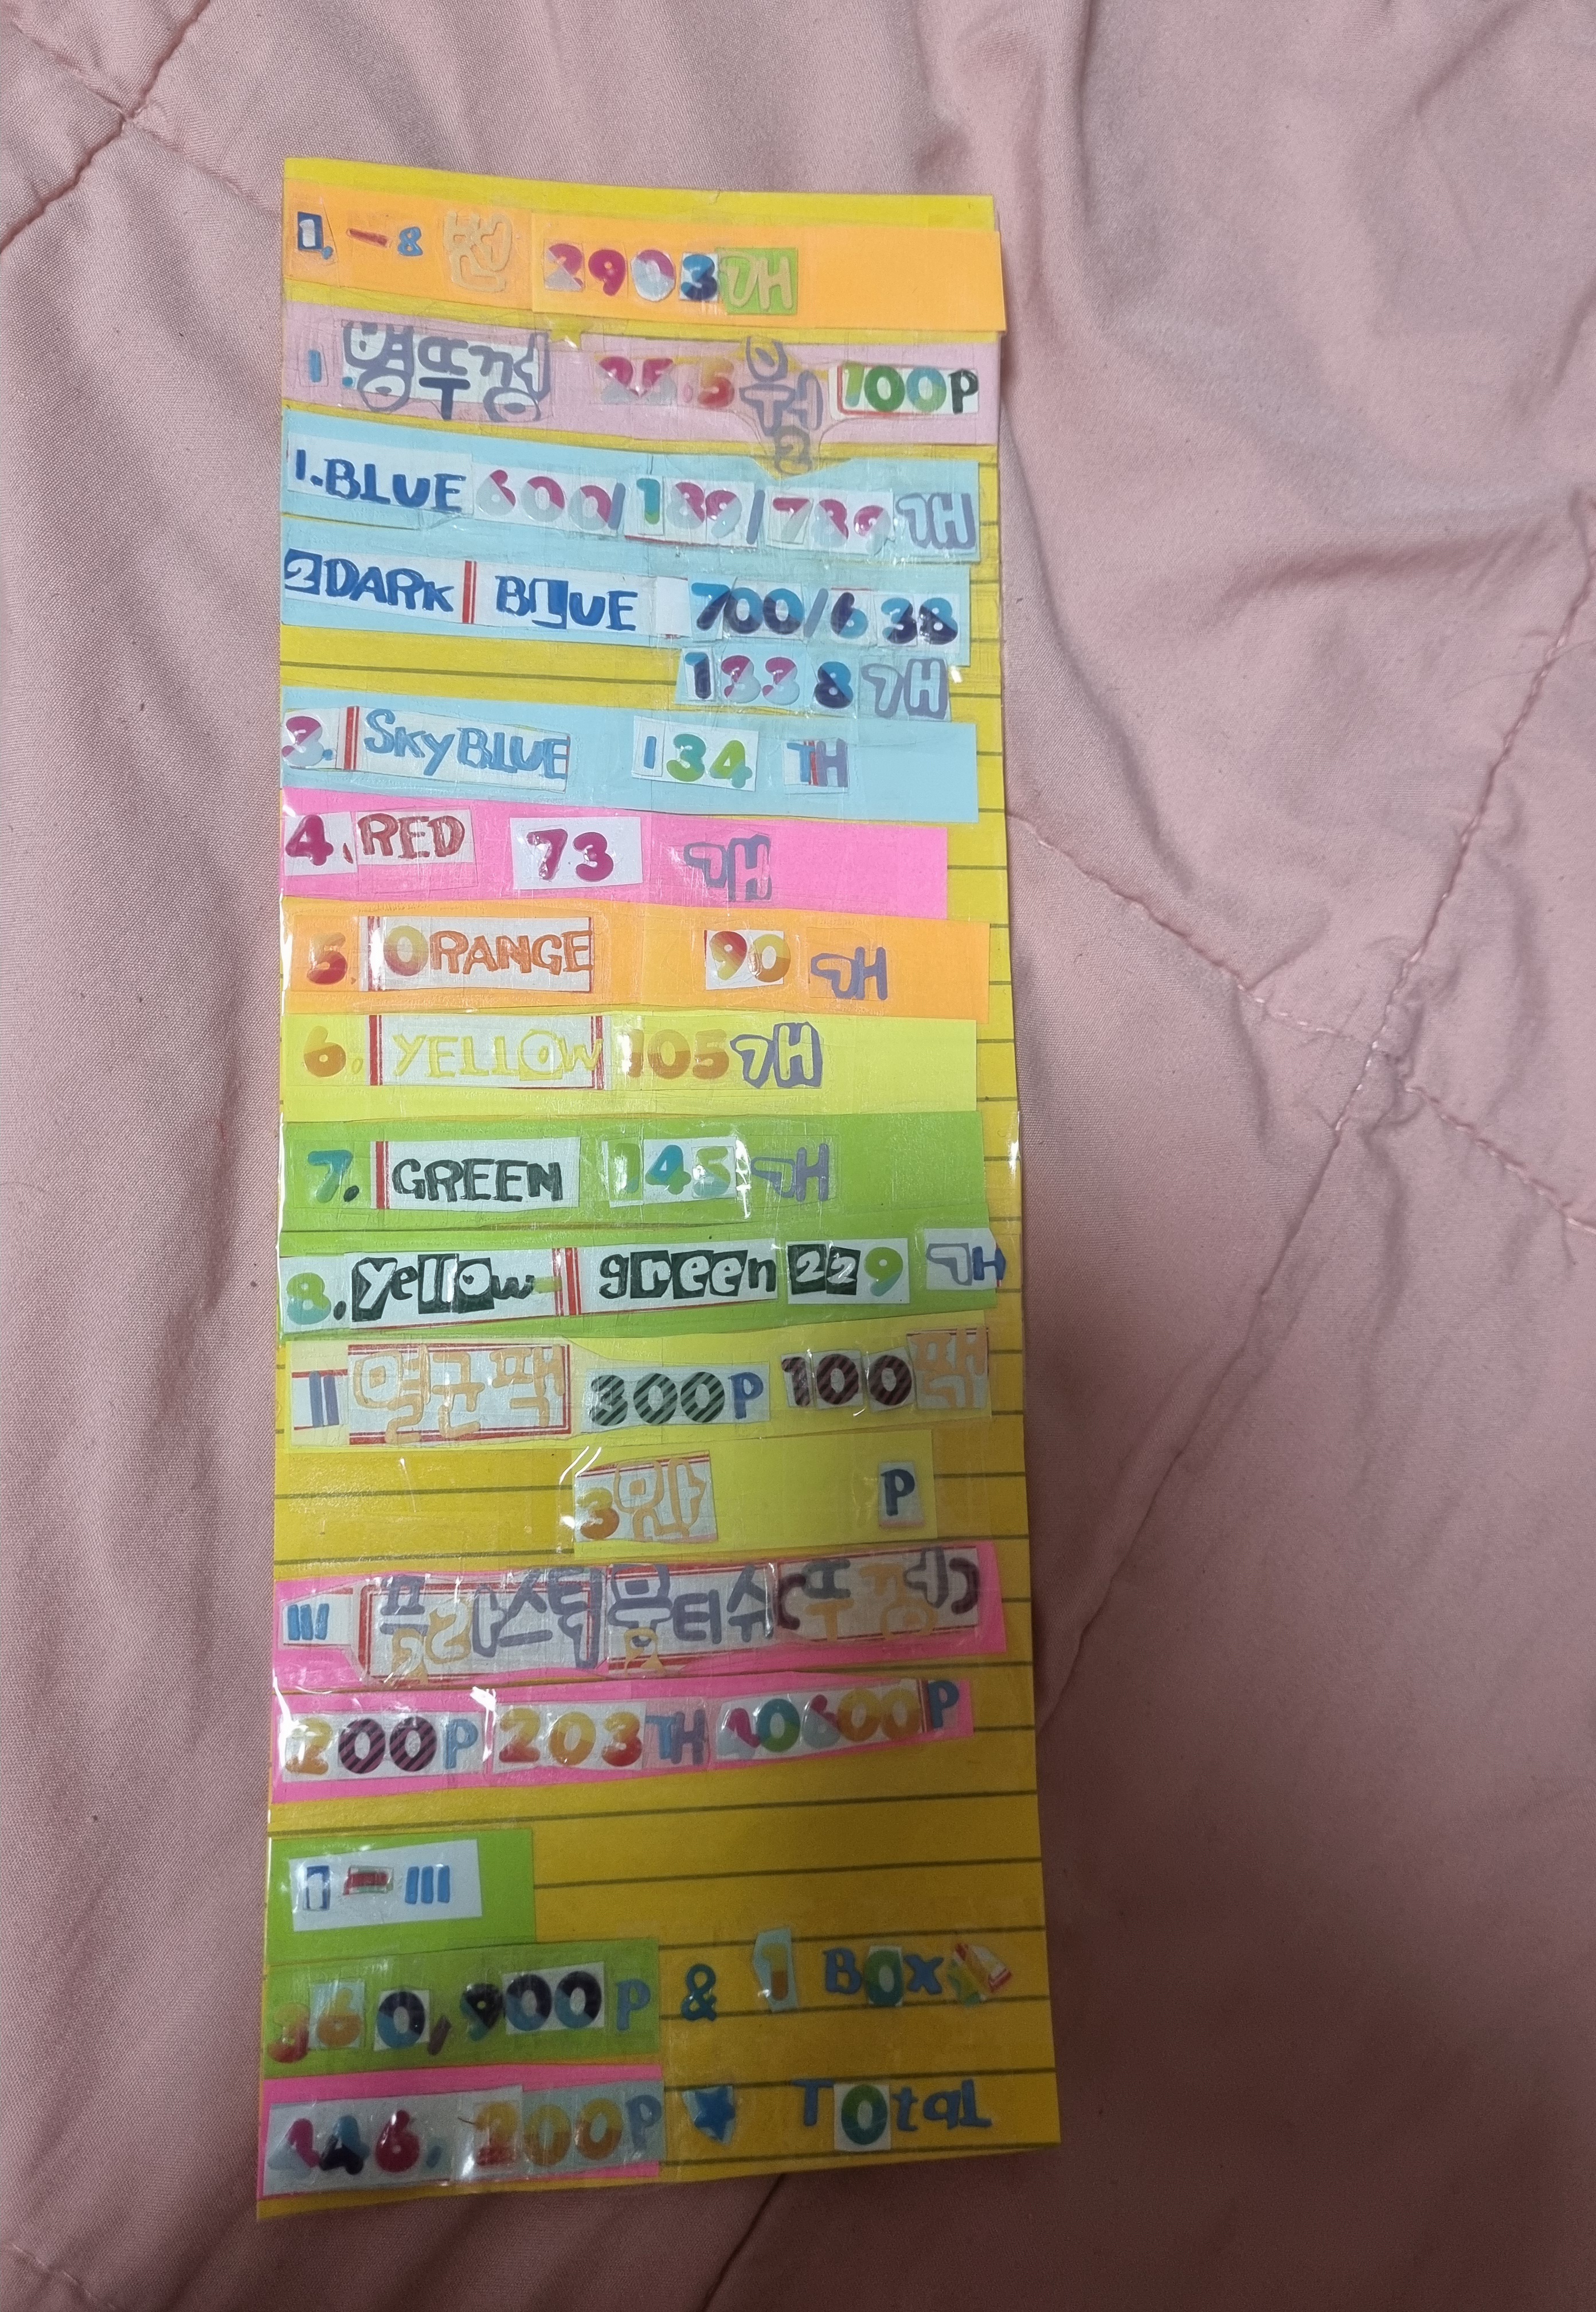 1. - 8 번 2903개
1. 병뚜껑 25.5 원 100P
2
1. BLUE 600/139/739 개
2 DARK BLUE 700/638
1338 개
3. SKy BLUE 134 개
4. RED 73 개
5 ORANGE 90 개
6. YELLOW 105 개
7. GREEN 145 개
8. yellow- green 229 개
II 멸균팩 300P 100팩
3만 P
III 플라스틱 물티슈(뚜껑)
200P 203개 40600P
1 - III
360,900P & 1 Box
446. 200P Total